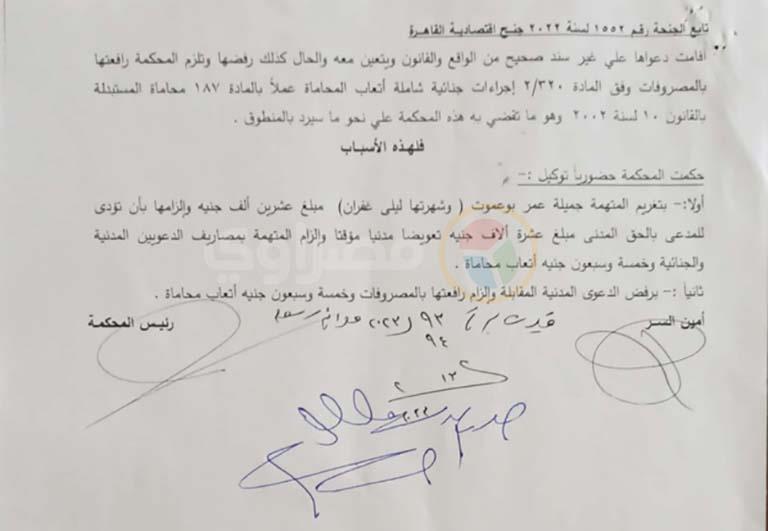 تابع الجنحة رقم ١٥٥٢ لسنة ٢٠٢٢ جنح اقتصادية القاهرة
أقامت دعواها علي غير سند صحيح من الواقع والقانون ويتعين معه والحال كذلك رفضها وتلزم المحكمة رافعتها
بالمصروفات وفق المادة ٢/٣٢٠ إجراءات جنائية شاملة أتعاب المحاماة عملاً بالمادة ١٨٧ محاماة المستبدلة
بالقانون ١٠ لسنة ٢٠٠٢ وهو ما تقضي به هذه المحكمة علي نحو ما سيرد بالمنطوق .
فلهذه الأسباب
حكمت المحكمة حضورياً توكيل :–
أولاً:– بتغريم المتهمة جميلة عمر بوعموت ( وشهرتها ليلى غفران) مبلغ عشرين ألف جنيه وإلزامها بأن تؤدى
للمدعى بالحق المدنى مبلغ عشرة ألاف جنيه تعويضا مدنيا مؤقتا وإلزام المتهمة بمصاريف الدعويين المدنية
والجنائية وخمسة وسبعون جنيه أتعاب محاماة .
ثانياً :– برفض الدعوى المدنية المقابلة وإلزام رافعتها بالمصروفات وخمسة وسبعون جنيه أتعاب محاماة .
أمين السر رئيس المحكمة
قيدت ٩٣ ٢٠٢٣
٩٤
مصراوي